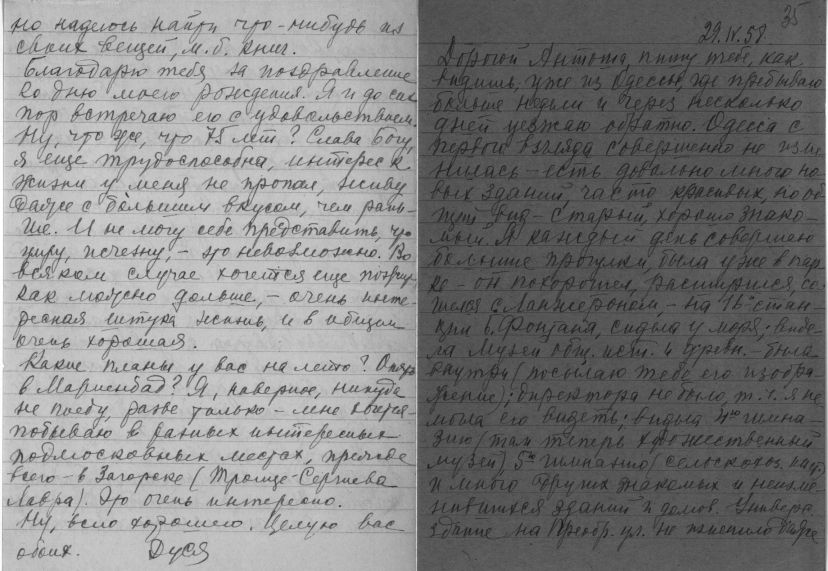 но надеюсь найти что-нибудь из
своих вещей, м.б. книг.
Благодарю тебя за поздравление
со днем моего рождения. Я и до сих
пор встречаю его с удовольствием.
Ну, что же, что 75 лет? Слава Богу,
я еще трудоспособна, интерес к
жизни у меня не пропал, живу
даже с большим вкусом, чем рань-
ше. И не могу себе представить, что
умру, исчезну, - это невозможно. Во
всяком случае хочется еще пожить
как можно дольше, - очень инте-
ресная штука жизнь, и в общем
очень хорошая.
Какие планы у вас на лето? Опять
в Мариенбад? Я, наверное, никуда
не поеду, разве только - мне хочется
побываю в разных интересных
подмосковных местах, прежде
всего - в Загорске (Троице-Сергиева
Лавра). Это очень интересно.
Ну, всего хорошего. Целую вас
обоих. Дуся
35
29.IV.58.
Дорогой Антоша, пишу тебе, как
видишь, уже из Одессы, где пребываю
больше недели и через несколько
дней уезжаю обратно. Одесса с
первого взгляда совершенно не изме
нилась - есть довольно много но
вых зданий, часто красивых, но об
щий вид - старый, хорошо знако-
мый. Я каждый день совершаю
большие прогулки, была уже в пар
ке - он похорошел, расширился, со-
шелся с Ланжероном, - на 16й стан-
ции Б. Фонтана, сидела у моря; виде-
ла Музей общ. ист. и древн. - была
внутри (посылаю тебе его изобра
жение); директора не было, т.ч. я не
могла его видеть; видела 4ую гимна-
зию (там теперь художественный
музей) 5ю гимназию (сельскохоз. инст.)
и много других знакомых и неизме
нившихся зданий и домов. Универс.
здание на Преобр. ул. не изменило даже